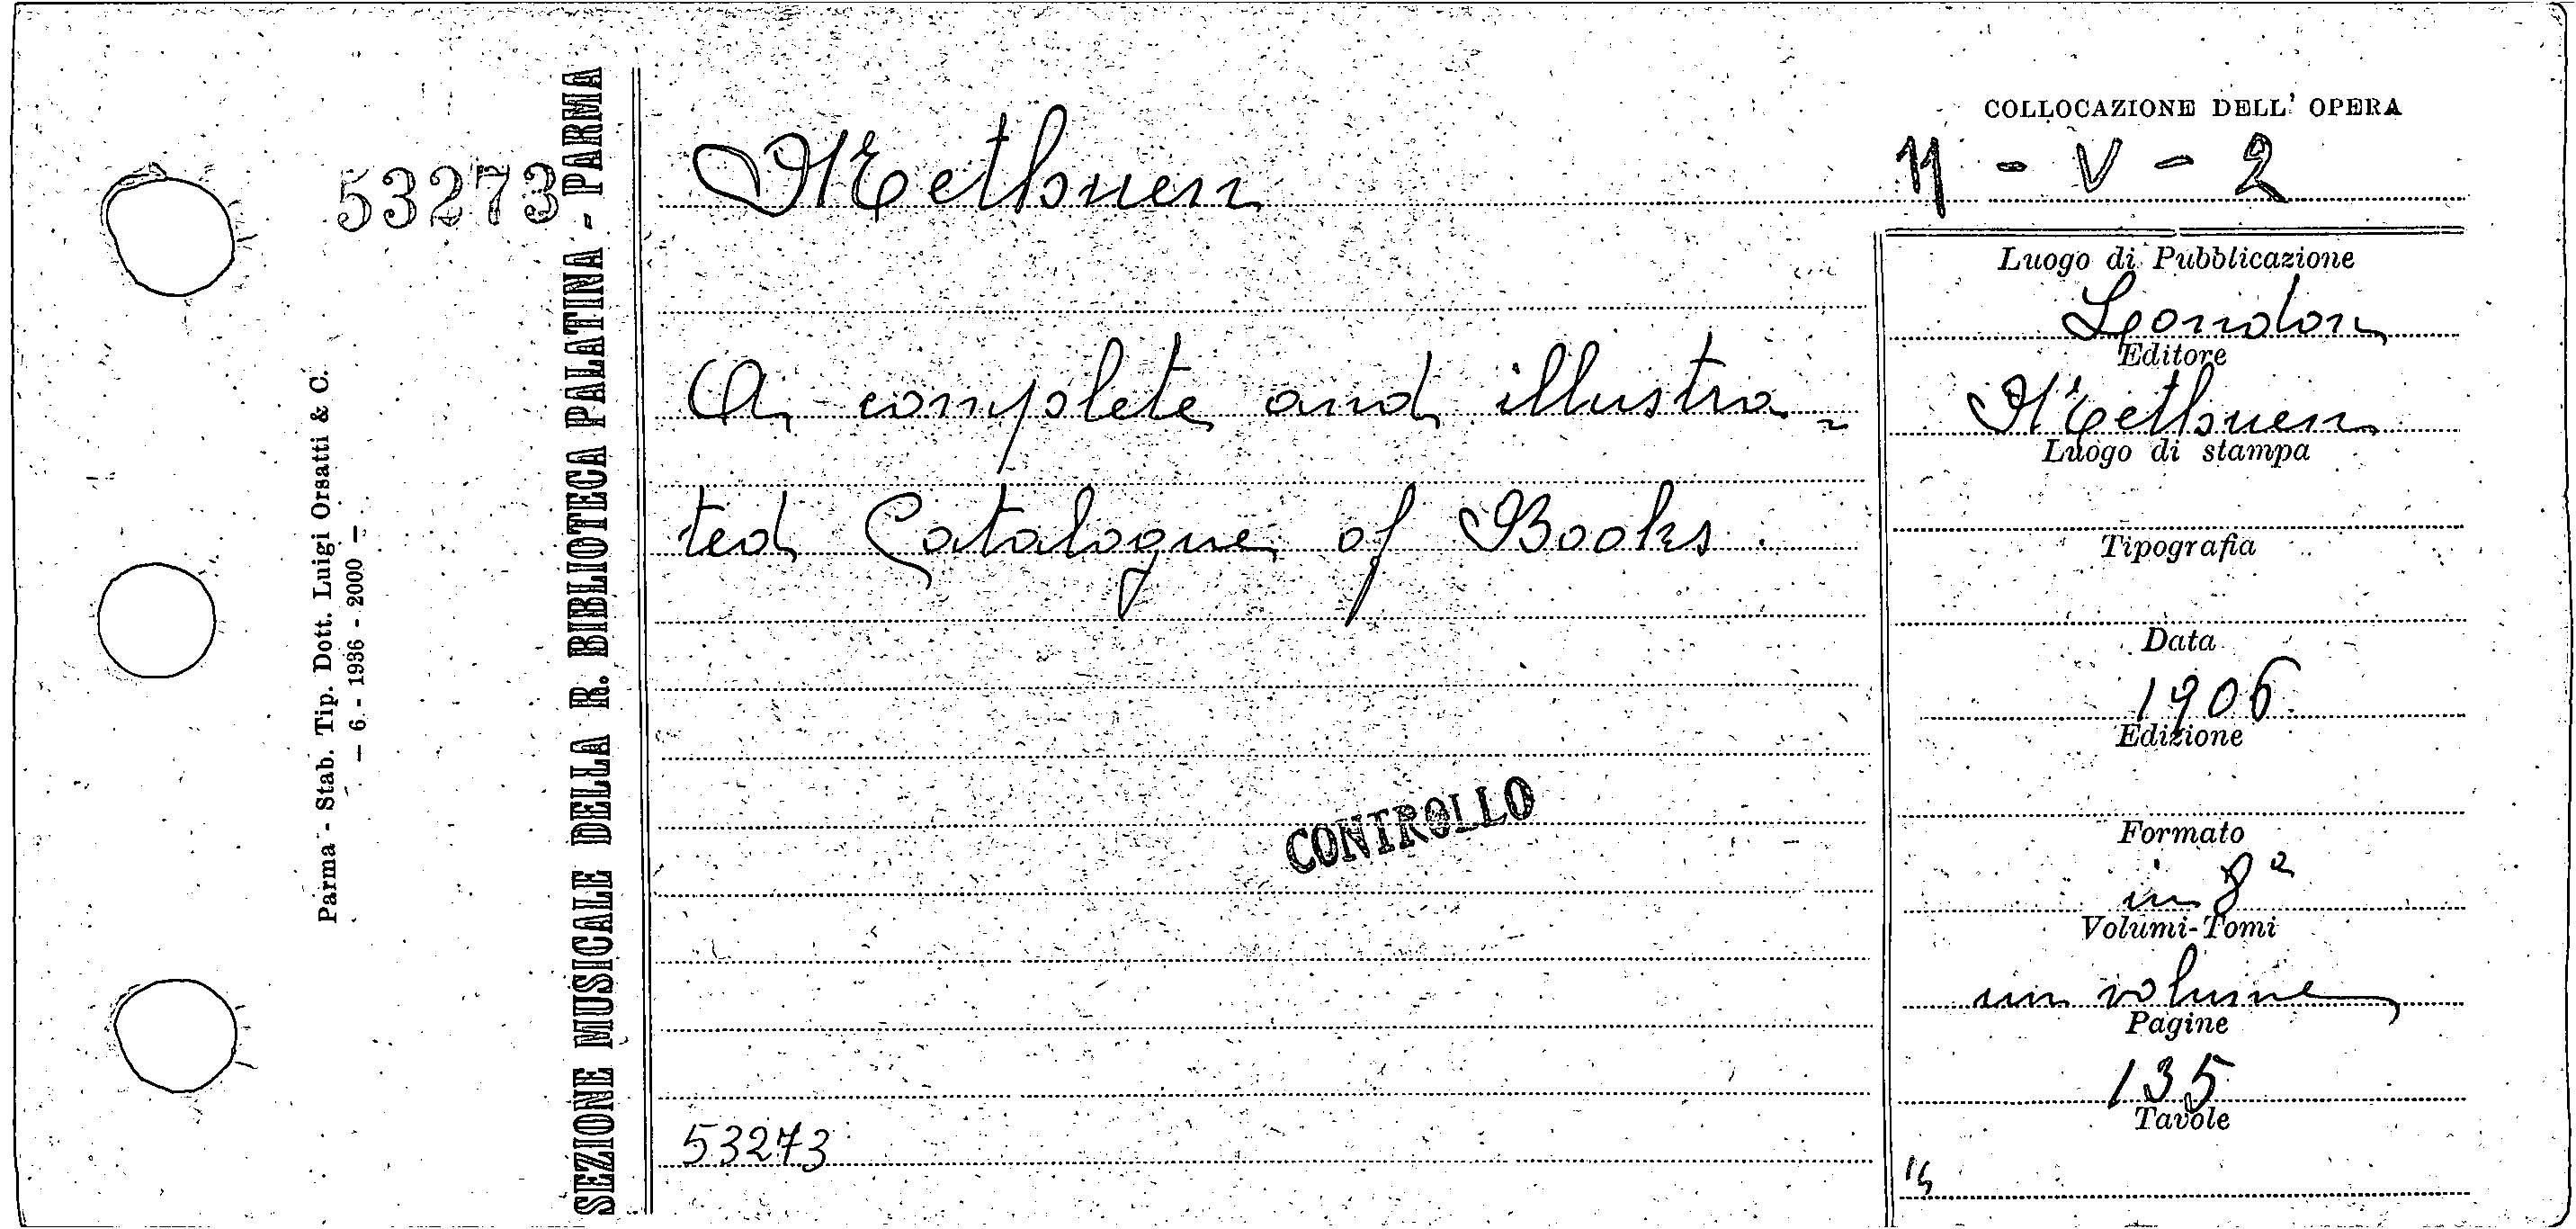 53273
Parma - Stab. Tip. Dott. Luigi Orsatti & C.
— 6 - 1936 - 2000 —
SEZIONE MUSICALE DELLA R. BIBLIOTECA PALATINA - PARMA
Methuen
A complete and illustra-
ted Catalogue of Books.
CONTROLLO
53273
COLLOCAZIONE DELL' OPERA
- V - 2
Luogo di Pubblicazione
London
Editore
Methuen
Luogo di stampa
Tipografia
Data
1906
Edizione
Formato
in 8º
Volumi-Tomi
un volume
Pagine
135
Tavole